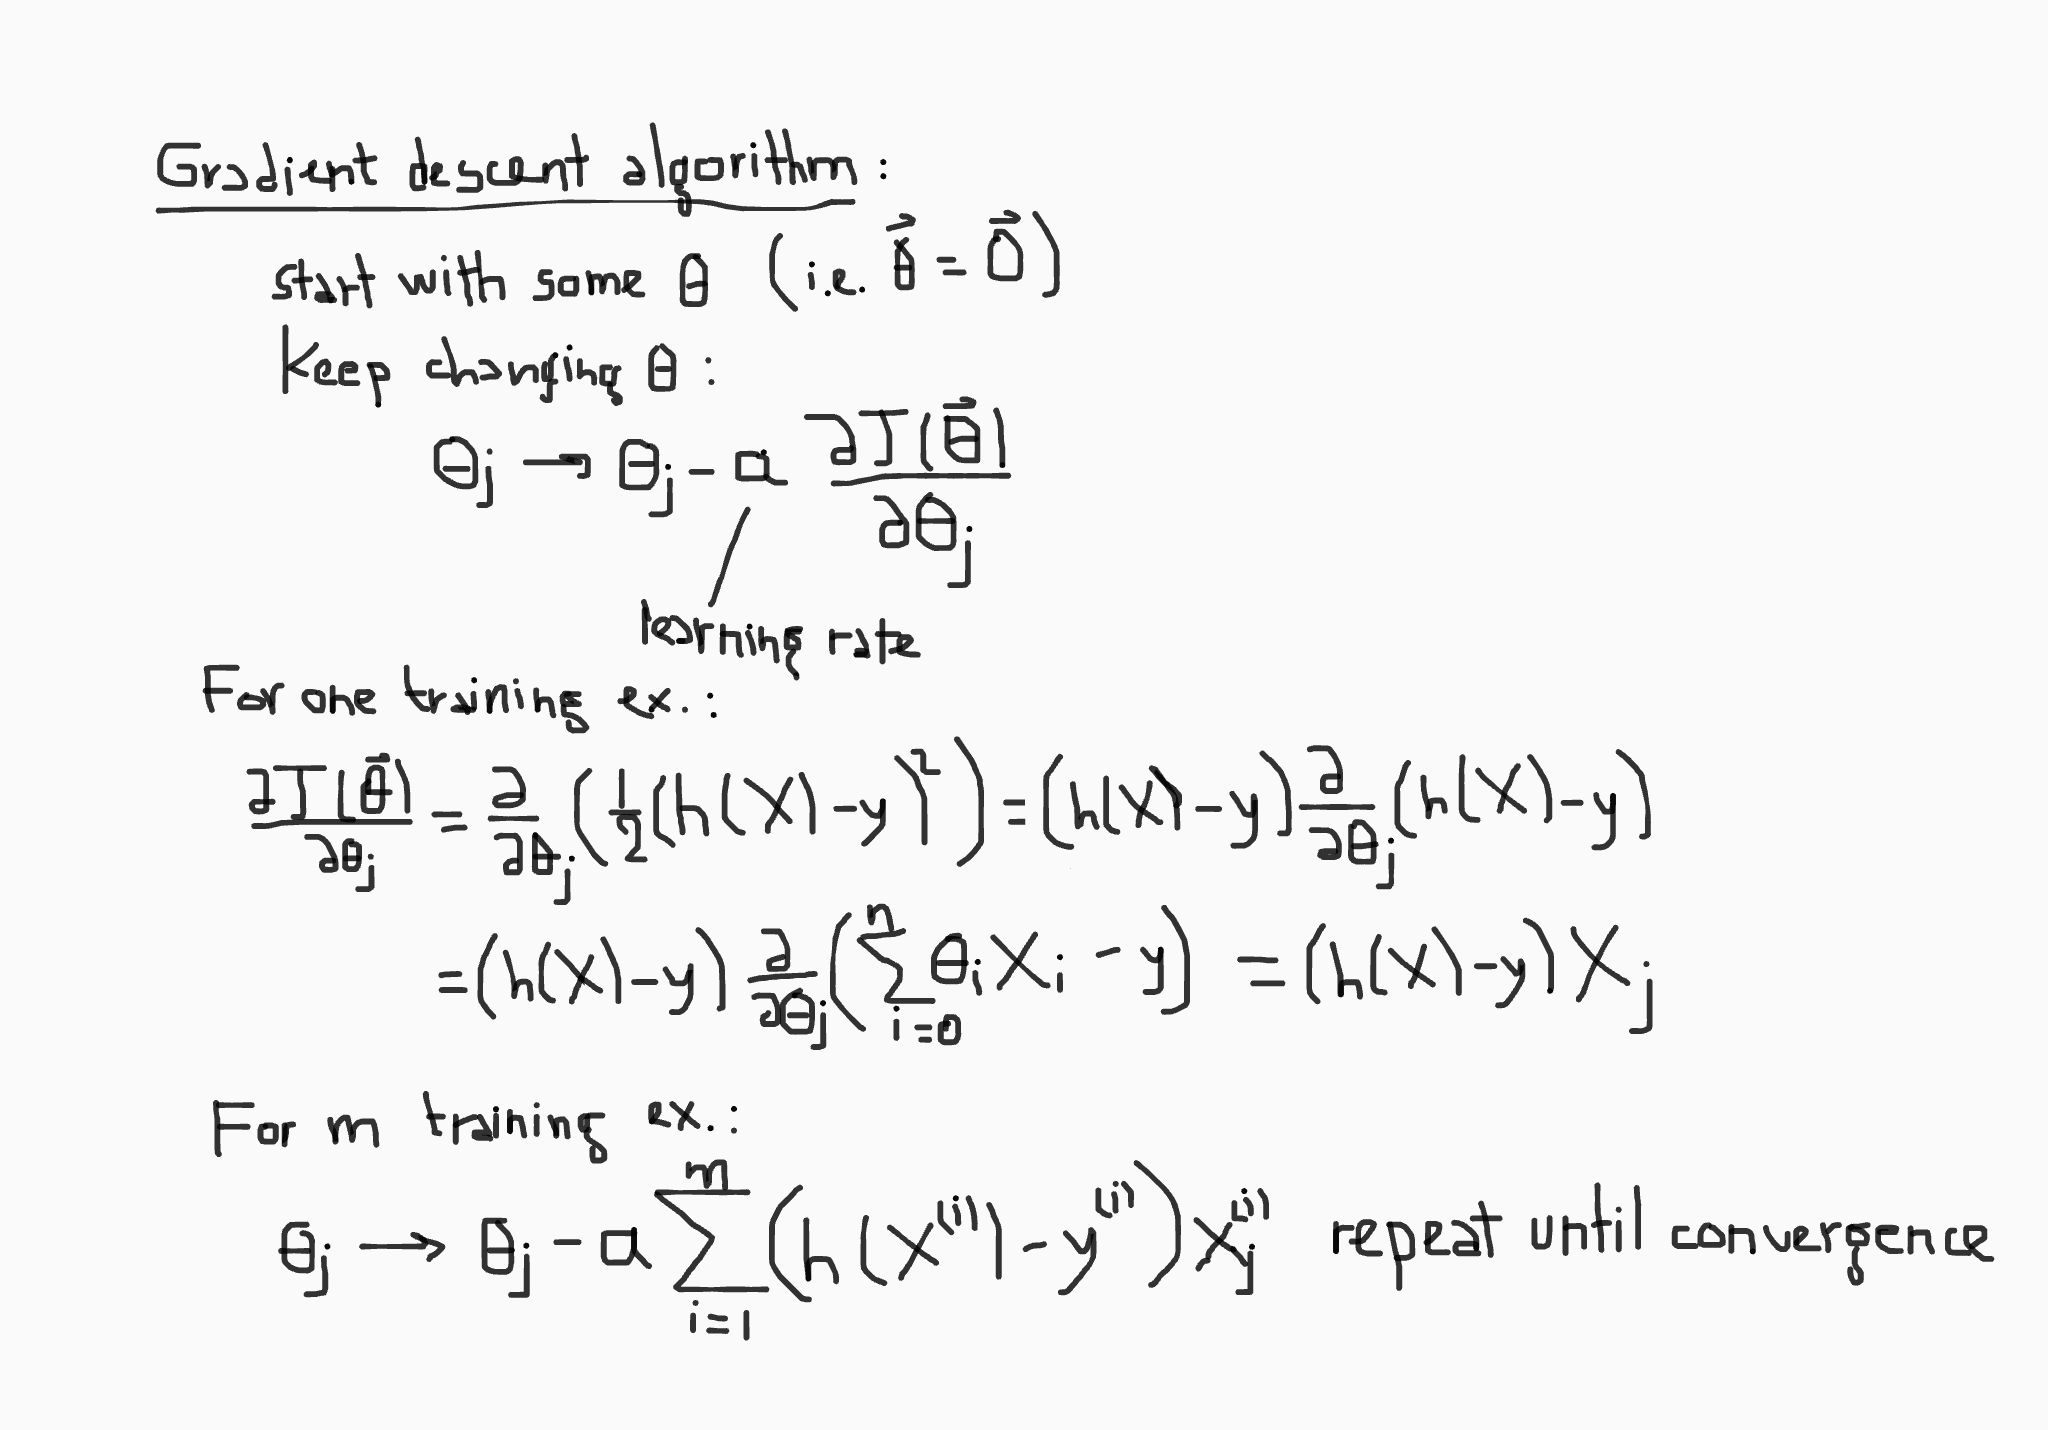 Gradient descent algorithm :
start with some θ (i.e. θ⃗ = 0⃗)
Keep changing θ :
θj → θj - α ∂J(θ⃗)/∂θj
learning rate
For one training ex. :
∂J(θ⃗)/∂θj = ∂/∂θj (1/2(h(X)-y)²) = (h(X)-y) ∂/∂θj (h(X)-y)
= (h(X)-y) ∂/∂θj (∑_{i=0}^{n} θi Xi - y) = (h(X)-y) Xj
For m training ex. :
θj → θj - α ∑_{i=1}^{m} (h(X^(i)) - y^(i)) Xj^(i) repeat until convergence